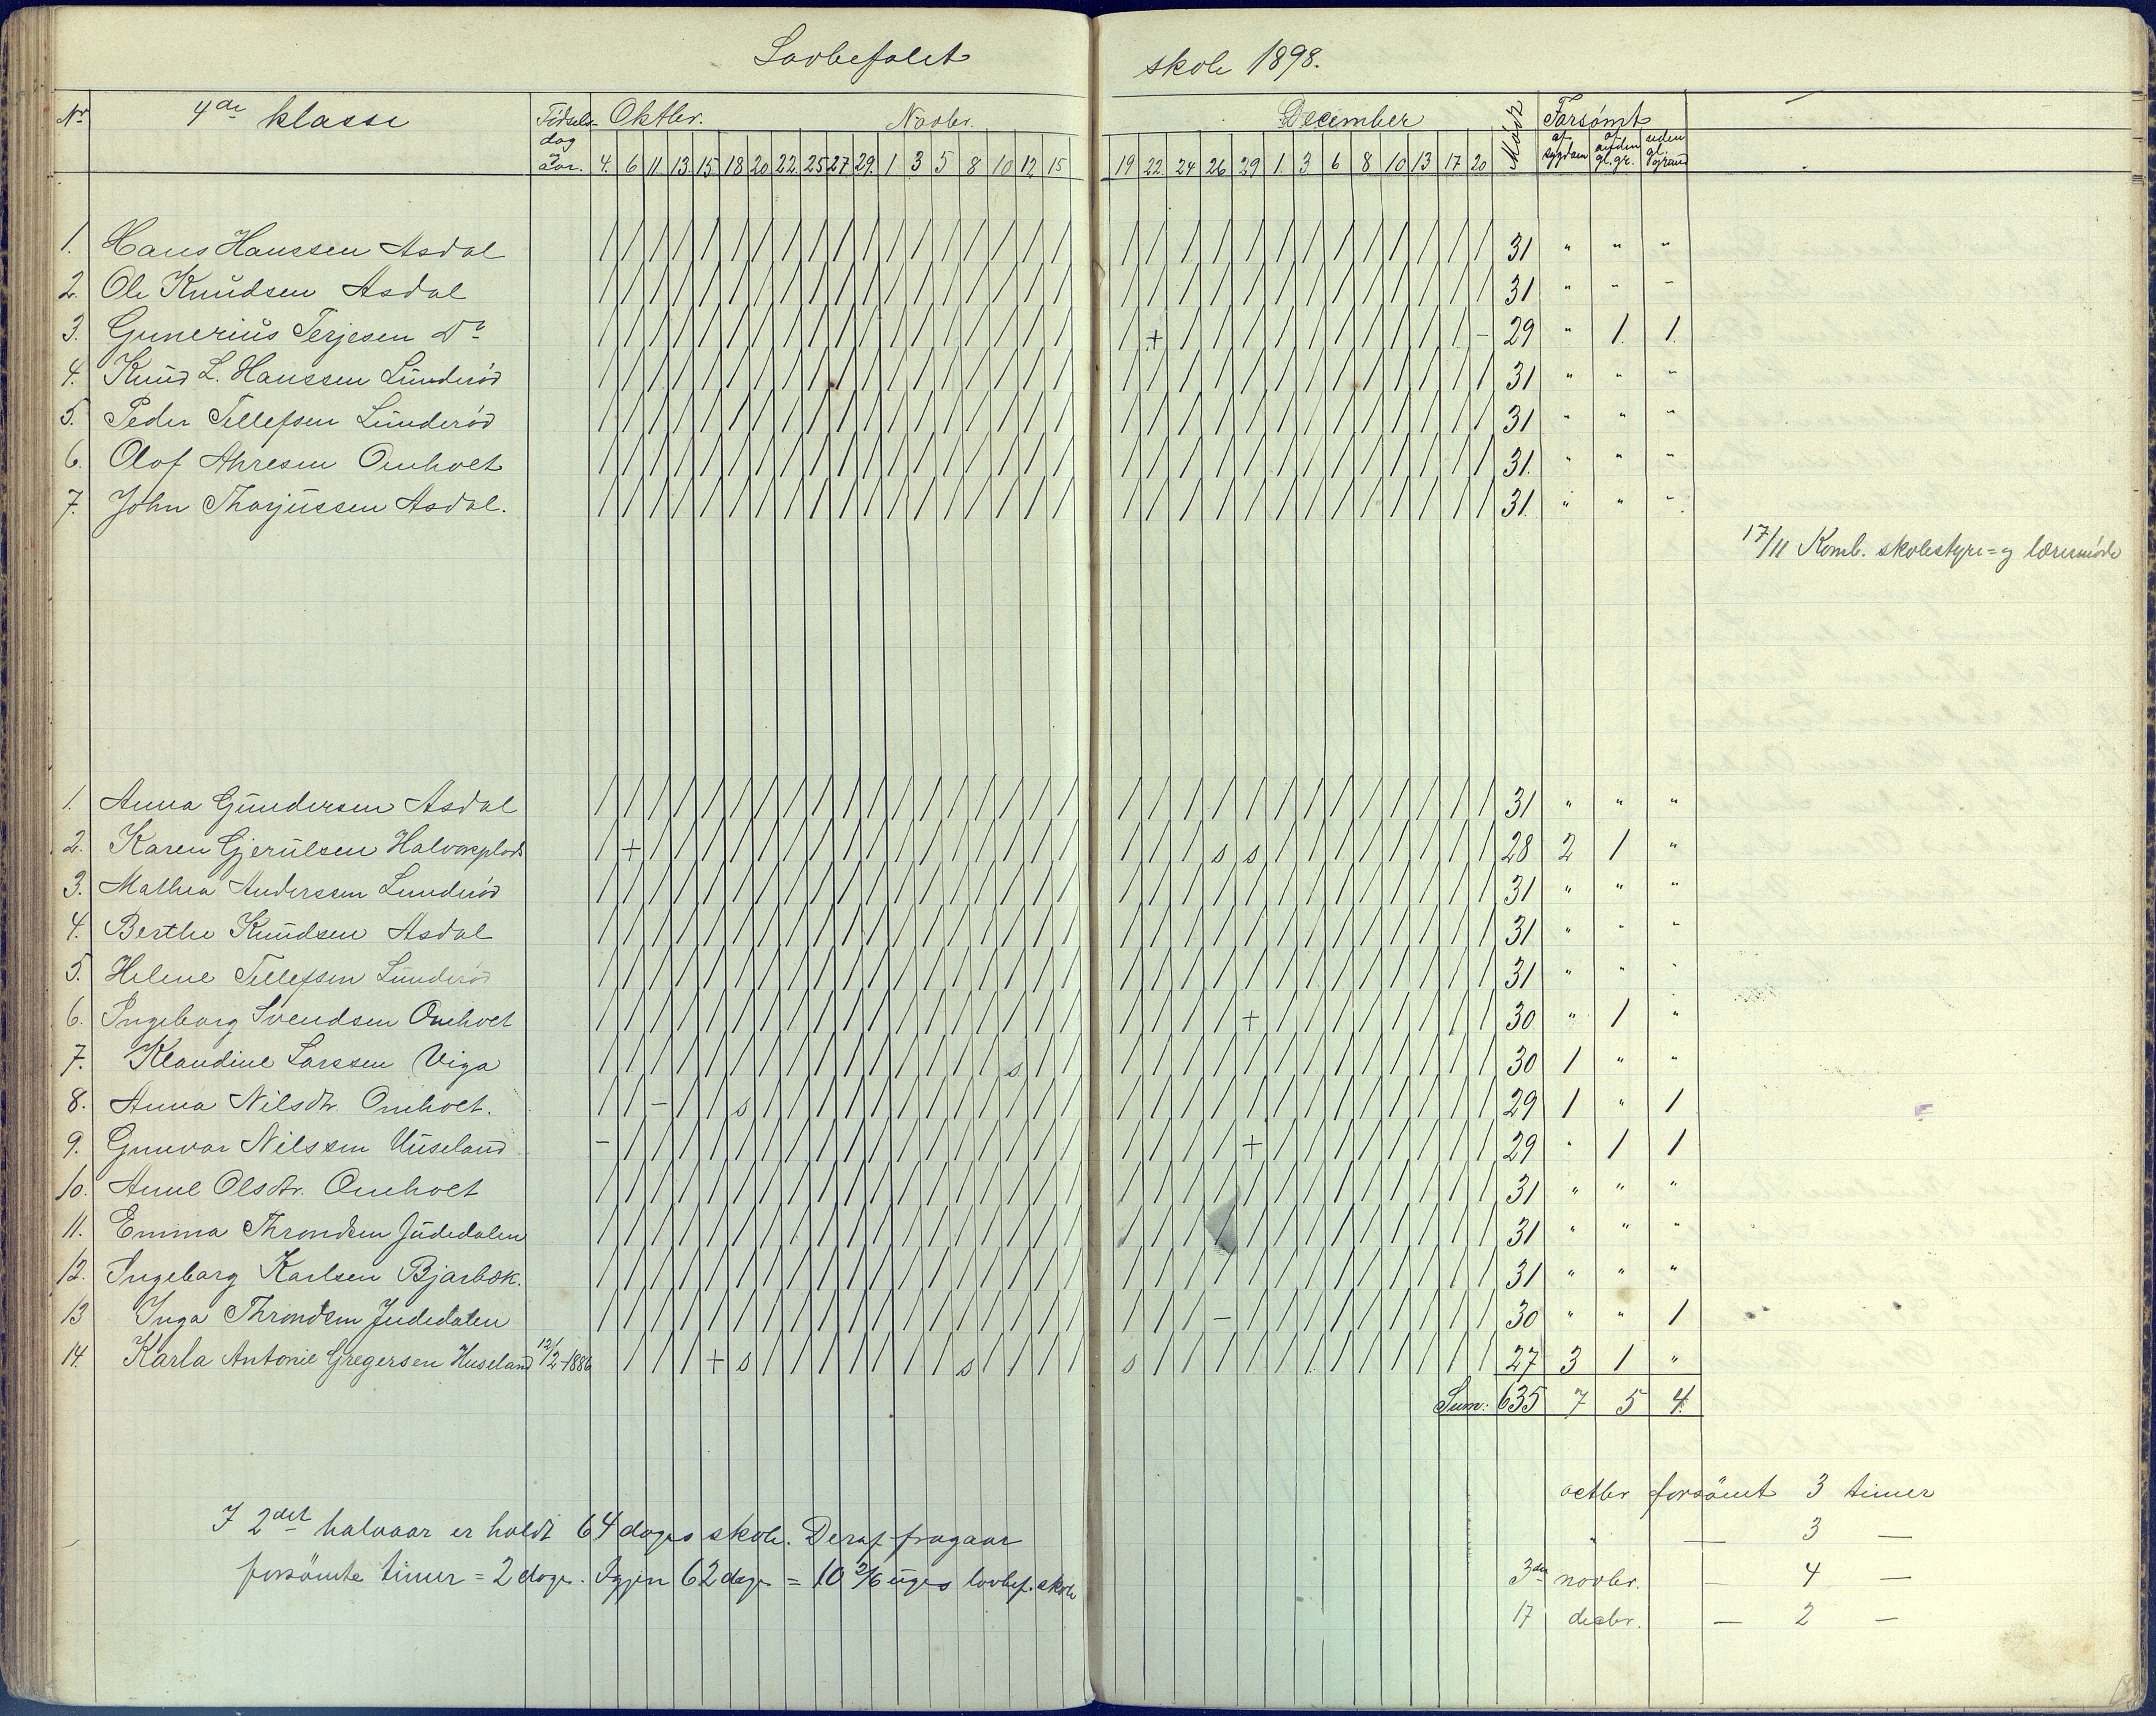 Lovbefalet skole 1898.
Nr 4de klasse Födselsdag og aar. Oktbr. Novbr. December Mödt Forsömt
af sygdom af anden gl. gr. uden gl. grund
4. 6 11. 13. 15 18 20 22. 25 27 29. 1 3 5 8 10 12 15 19 22. 24 26 29 1. 3 6 8 10 13 17 20
1. Hans Hanssen Asdal / / / / / / / / / / / / / / / / / / / / / / / / / / / / / / / 31 " " "
2. Ole Knudsen Asdal / / / / / / / / / / / / / / / / / / / / / / / / / / / / / / / 31 " " "
3. Gunerius Terjesen Do / / / / / / / / / / / / / / / / / / / + / / / / / / / / / / - 29 " 1. 1.
4. Knud L. Hanssen Lunderöd / / / / / / / / / / / / / / / / / / / / / / / / / / / / / / / 31 " " "
5. Peder Tellefsen Lunderöd / / / / / / / / / / / / / / / / / / / / / / / / / / / / / / / 31 " " "
6. Olaf Ahresen Omholt / / / / / / / / / / / / / / / / / / / / / / / / / / / / / / / 31. " " "
7. John Tharjussen Asdal. / / / / / / / / / / / / / / / / / / / / / / / / / / / / / / / 31 " " "
17/11 Komb. skolestyre= og læremöde
1. Anna Gundersen Asdal / / / / / / / / / / / / / / / / / / / / / / / / / / / / / / / 31 " " "
2. Karen Gjerulsen Halvorsplads / + / / / / / / / / / / / / / / / / / / / s s / / / / / / / / 28 2 1 "
3. Mathea Anderssen Lunderöd / / / / / / / / / / / / / / / / / / / / / / / / / / / / / / / 31 " " "
4. Berthe Knudsen Asdal / / / / / / / / / / / / / / / / / / / / / / / / / / / / / / / 31 " " "
5. Helene Tellefsen Lunderöd / / / / / / / / / / / / / / / / / / / / / / / / / / / / / / / 31 " " "
6. Ingeborg Svendsen Omholt / / / / / / / / / / / / / / / / / / / / / / + / / / / / / / / 30 " 1 "
7. Klaudine Larssen Viga / / / / / / / / / / / / / / / s / / / / / / / / / / / / / / / 30 1 " "
8. Anna Nilsdtr. Omholt. / / - / / s / / / / / / / / / / / / / / / / / / / / / / / / / 29 1 " 1
9. Gunvor Nilssen Huseland - / / / / / / / / / / / / / / / / / / / / / + / / / / / / / / 29 " 1 1
10. Anne Olsdtr. Omholt / / / / / / / / / / / / / / / / / / / / / / / / / / / / / / / 31 " " "
11. Emma Throndsen Judedalen / / / / / / / / / / / / / / / / / / / / / / / / / / / / / / / 31 " " "
12. Ingeborg Karlsen Bjarbæk. / / / / / / / / / / / / / / / / / / / / / / / / / / / / / / / 31 " " "
13 Inga Throndsen Judedalen / / / / / / / / / / / / / / / / / / / / / - / / / / / / / / / 30 " " 1
14. Karla Antonie Gregersen Huseland 12/2-1886 / / / + s / / / / / / / / s / / / s / / / / / / / / / / / / 27 3 1 "
Sum: 635 7 5 4.
I 2det halvaar er holdt 64 dages skole. Deraf fragaar
forsömte timer = 2 dage. Igjen 62 dage = 10 2/6 uges lovbef. skole
octbr forsömt 3 timer
" — 3 —
3die novbr. — 4 —
17 decbr. — 2 —